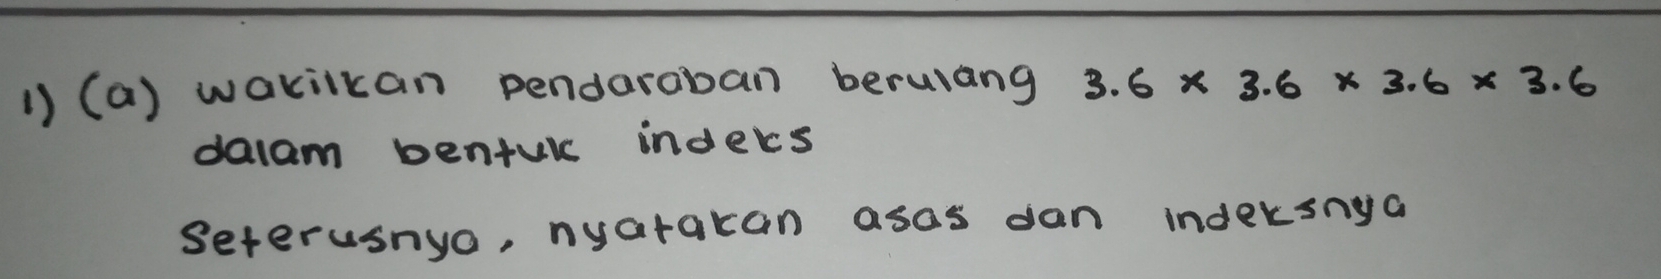 1) (a) wakilkan pendaraban berulang 3.6 × 3.6 × 3.6 × 3.6
dalam bentuk indeks
Seterusnya, nyatakan asas dan indeksnya